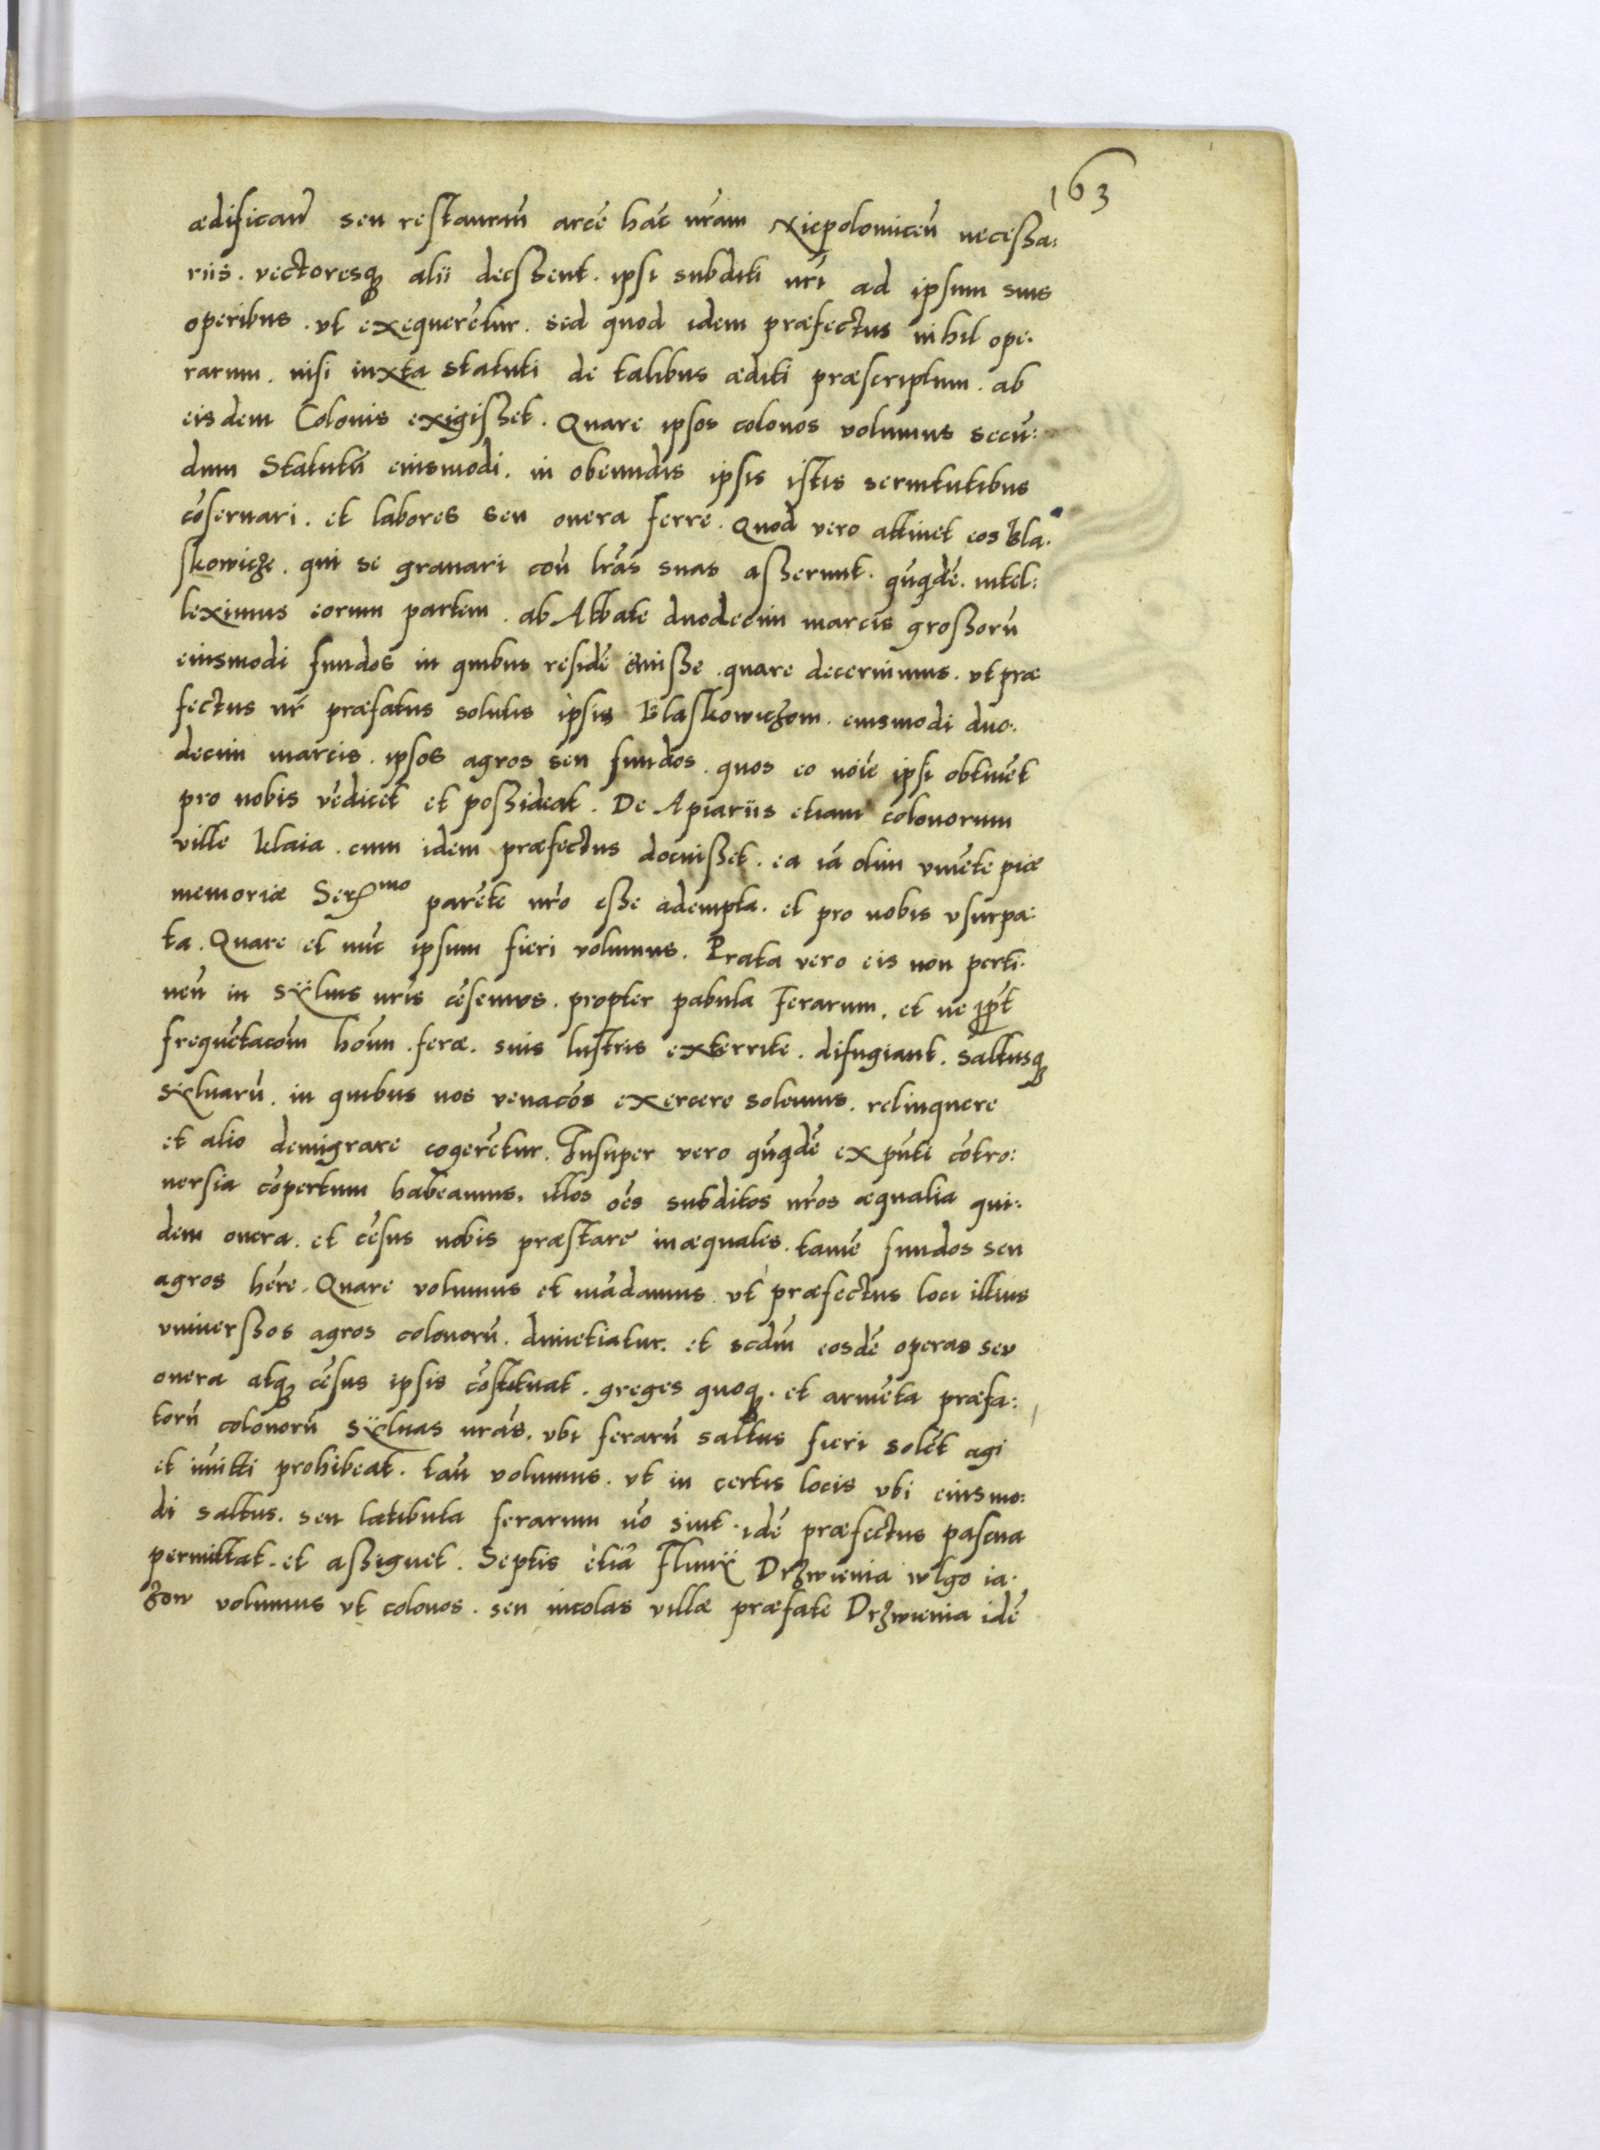 163
ædifican̄ seu restauran̄ arcē hāc nr̄am Niepolomiceń necessa:
riis. vectoresq; alii deessent. ipsi subditi nr̄i ad ipsum suis
operibus. vt exequerētur. sed quod idem præfectus nihil ope.
rarum. nisi iuxta statuti de talibus æditi præscriptum. ab
eisdem Colonis exigisset. Quare ipsos colonos volumus secū:
dum Statutū eiusmodi. in obeundis ipsis istis seruitutibus
cōseruari. et labores seu onera ferre. Quod vero attinet eos Bla.
skowicze. qui se grauari coñ lr̄as suas asserunt. qn̄qdē. intel:
leximus eorum partem. ab Abbate duodecim marcis grossorū
eiusmodi fundos in quibus residē emisse. quare decernimus. vt præ
fectus nr̄ præfatus solutis ipsis Blaskowiczom. eiusmodi duo.
decim marcis. ipsos agros seu fundos. quos eo noīe ipsi obtinēt
pro nobis vēdicet et possideat. De Apiariis etiam colonorum
ville Klaia. cum idem præfectus docuisset. ea iā olim viuēte piæ
memoriæ Ser^mo parēte nr̄o esse adempta. et pro nobis vsurpa:
ta. Quare et nūc ipsum fieri volumus. Prata vero eis non perti.
neñ in sÿluis nr̄is cēsemus. propter pabula Ferarum. et ne ꝓpt
frequētacōm hoīm. feræ. suis lustris exterrite. difugiant. saltusq;
sÿluarū. in quibus nos venacōs exercere solemus. relinquere
et alio demigrare cogerētur. Insuper vero qn̄qdē ex pn̄ti cōtro:
uersia cōpertum habeamus. illos oēs subditos nr̄os æqualia qui:
dem onera. et cēsus nobis præstare inæquales. tamē fundos seu
agros hēre. Quare volumus et mādamus. vt præfectus loci illius
vniuersos agros colonorū. dimetiatur. et scdm̄ eosdē operas seu
onera atq; cēsus ipsis cōstituat. greges quoq;. et armēta præfa:
torū colonorū sÿluas nr̄as. vbi ferarū saltus fieri solēt agi
et im̄itti prohibeat. tam̄ volumus. vt in certis locis vbi eiusmo:
di saltus. seu latibula ferarum nō sint. idē præfectus pascua
permittat. et assignet. Septis ētiā Fluuÿ Drzwienia wlgo ia.
zow volumus vt colonos. seu incolas villæ præfate Drzwienia idē